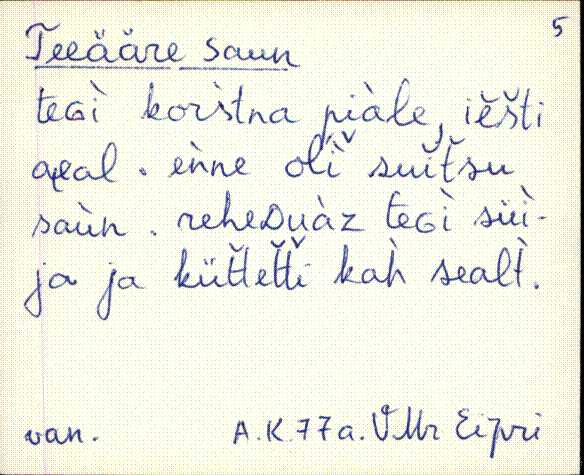 5
Teeääre saun
teGì korìstna piàle, iĕšti
aeal. ènne olì suĭtšu
saùn. reheDuàz teGì süì-
ja ja küt̆tet̆ti kàh sealt̀.
van. A.K. 77a. VMr Eipri